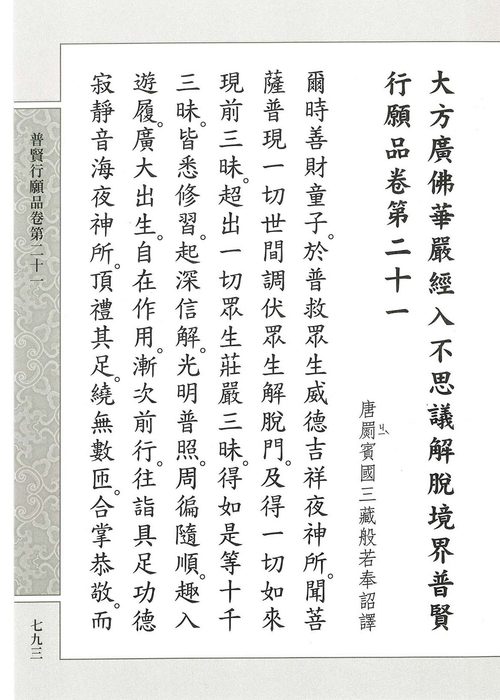 大方廣佛華嚴經入不思議解脫境界普賢
行願品卷第二十一
唐罽賓國三藏般若奉詔譯
ㄐㄧˋ
爾時善財童子。於普救眾生威德吉祥夜神所。聞菩
薩普現一切世間調伏眾生解脫門。及得一切如來
現前三昧。超出一切眾生莊嚴三昧。得如是等十千
三昧。皆悉修習。起深信解。光明普照。周徧隨順。趣入
遊履。廣大出生。自在作用。漸次前行。往詣具足功德
寂靜音海夜神所。頂禮其足。繞無數匝。合掌恭敬。而
普賢行願品卷第二十一
七九三